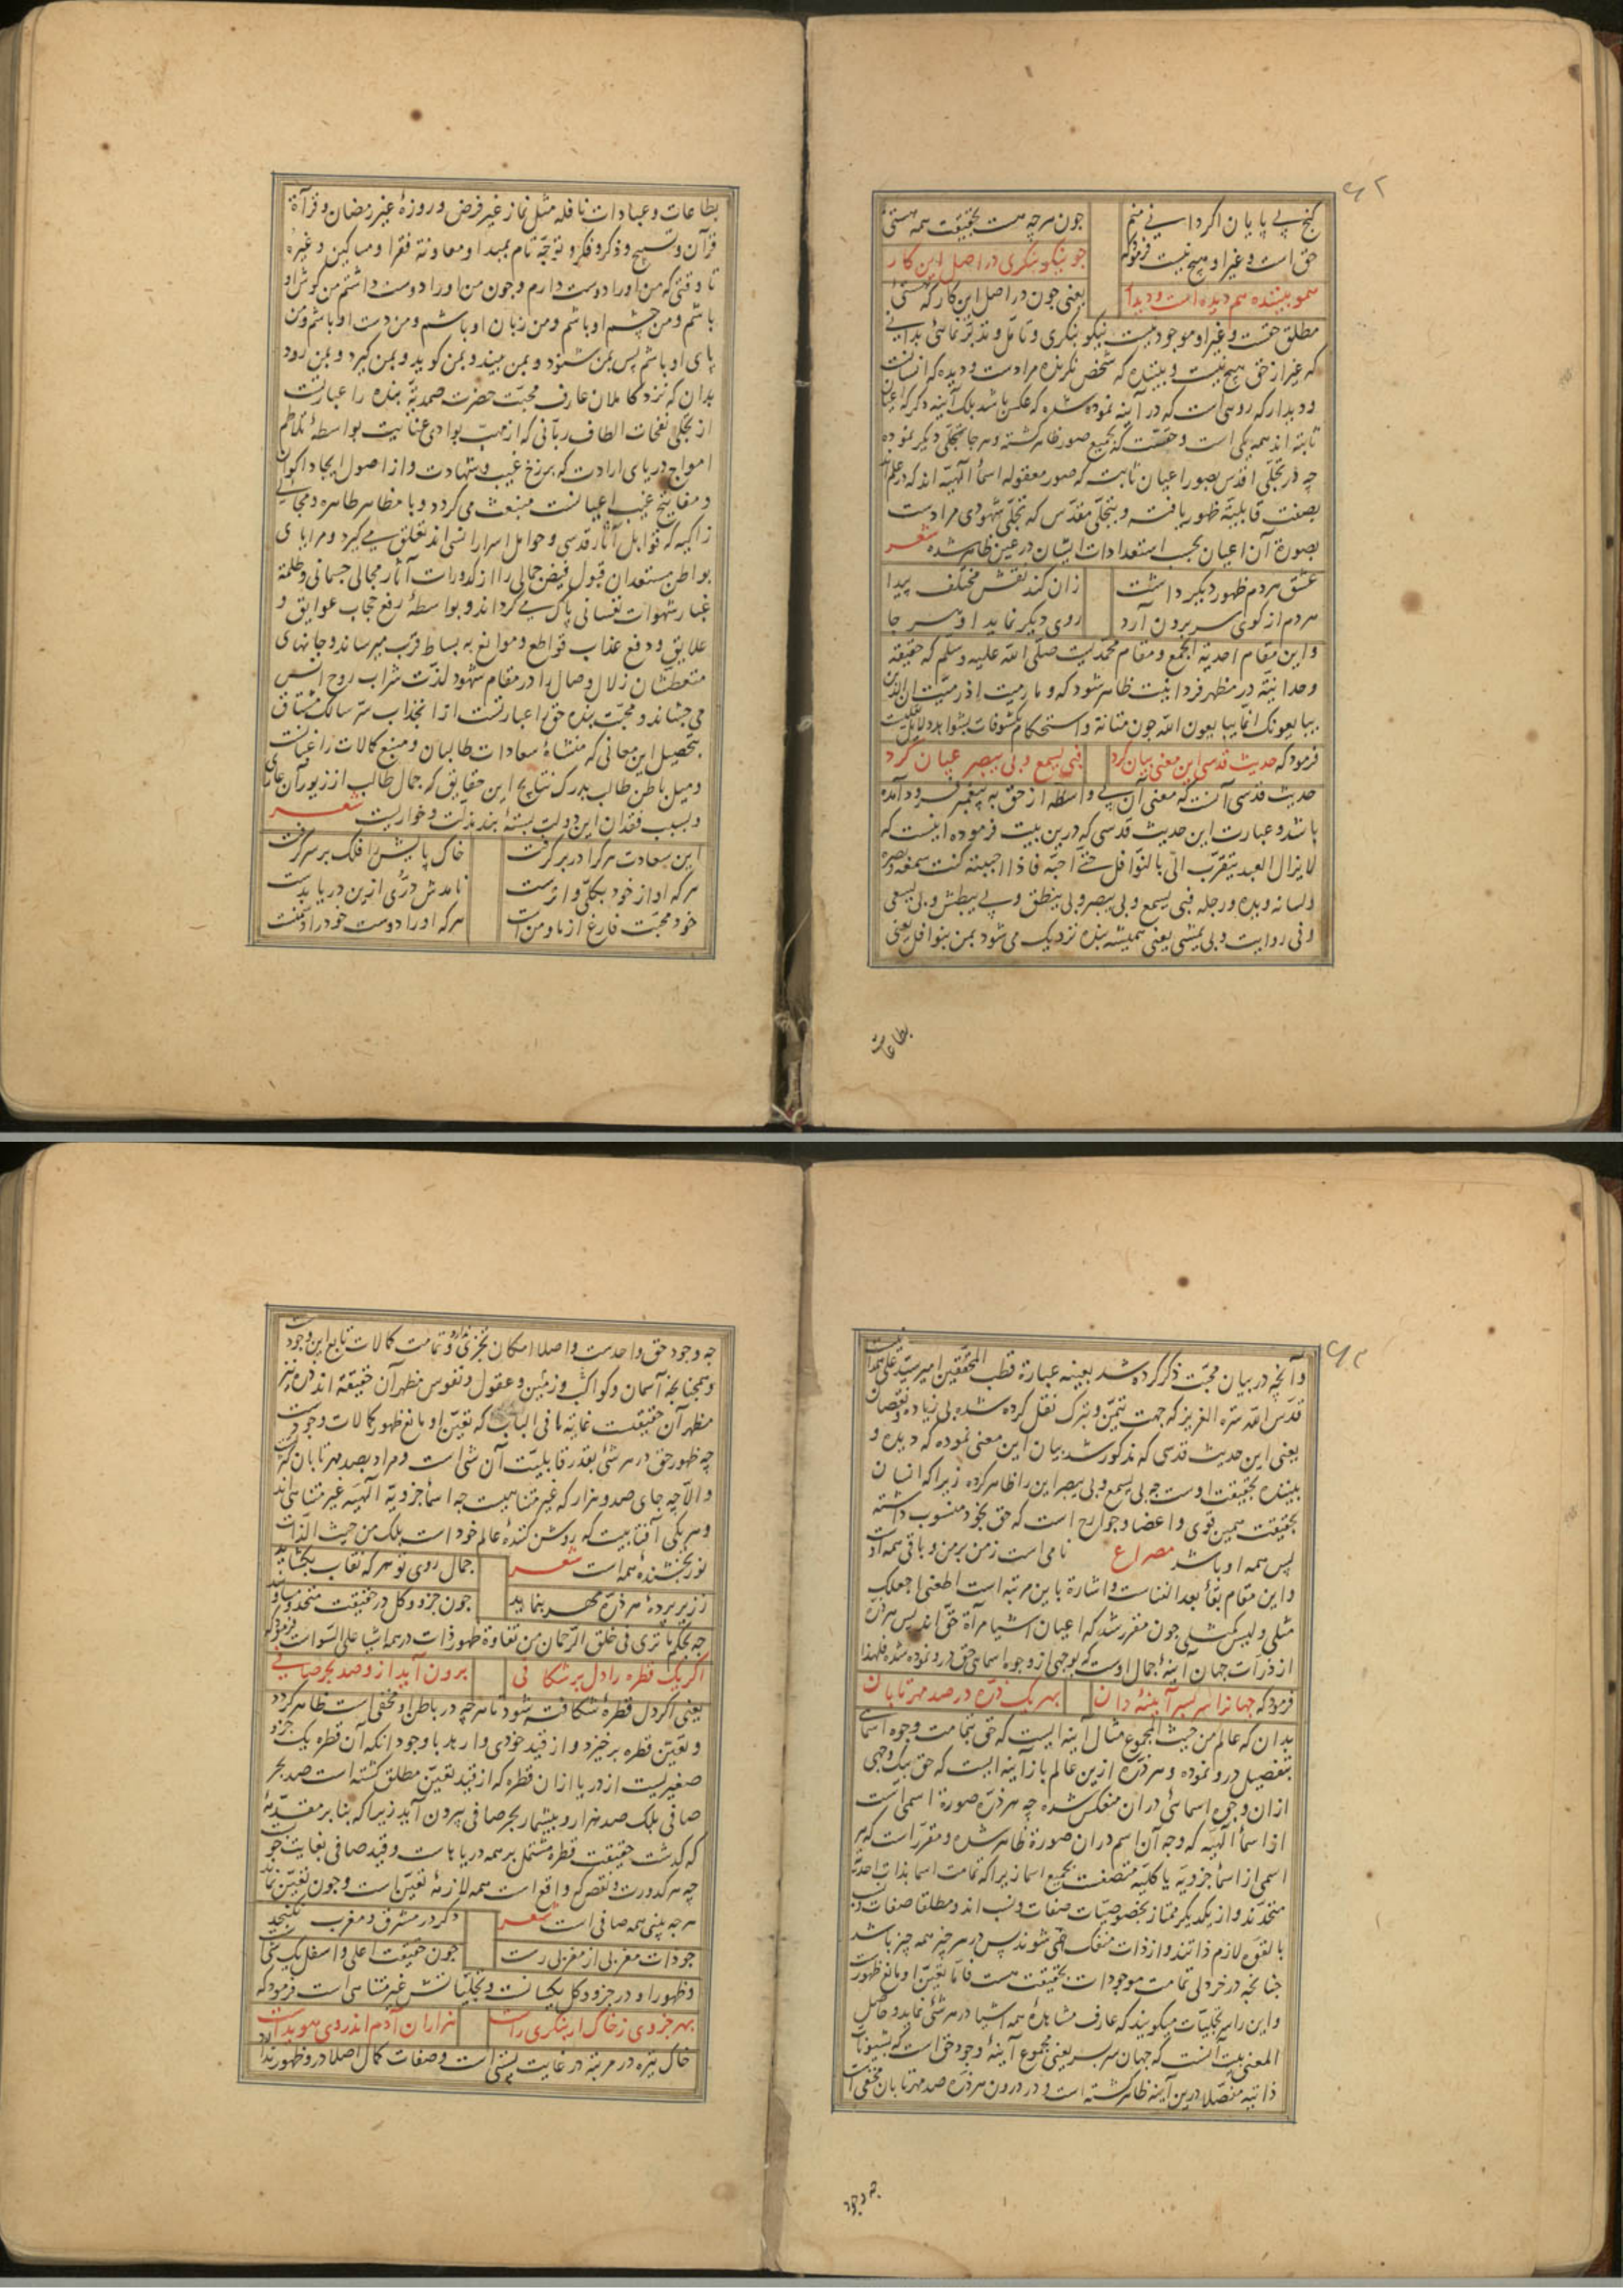 گنج بی پایان اگر دانی منم
چون هر چه هست بحقیقت همه هستی
حق است و غیر او هیچ نیست فرموده که
چو نیکو بنگری در اصل این کار
همو بیننده هم دیده است و دیدار
یعنی چون در اصل این کار که هستی
مطلق حقست و غیر او موجود نیست نیکو بنگری و تأمل و تدبر نمائی بدانی
که غیر از حق هیچ نیست و بیننده که شخص نگرنده مرادست و دیده که انسانست
و دیدار که روی است که در آینه نموده شده که عکس باشد بلک آینه دگر که اعیان
ثابته اند همه یکی است و حقست که بجمیع صور ظاهر گشته و هر جا بتجلی دیگر نموده
چه در تجلی اقدس بصور اعیان ثابته که صور معقوله اسماء الهیه اند که در علم اند
بصفت قابلیة ظهور یافته و بتجلی مقدس که تجلی شهودی مرادست
بصورة آن اعیان بحسب استعدادات ایشان در عین ظاهر شده شعر
عشق هر دم ظهور دیگر داشت زان کند نقش مختلف پیدا
هر دم از کوی سر برون آرد روی دیگر نماید او هر جا
و این مقام احدیة الجمع و مقام محمدیست صلی الله علیه وسلم که حقیقة
وحدانیة در مظهر فردانیت ظاهر شود که و ما رمیت اذ رمیت ان الذین
یبایعونک انما یبایعون الله چون متانة و استحکام مکشوفات بشواهد دلایل نقلیست
فرمود که حدیث قدسی این معنی بیان کرد فبی یسمع و بی یبصر عیان کرد
حدیث قدسی آنست که معنی آن بی واسطه از حق به پیغمبر فرود آمده
باشد و عبارت این حدیث قدسی که درین بیت فرموده اینست که
لا یزال العبد یتقرب الی بالنوافل حتی احبه فاذا احببته کنت سمعه و بصره
و لسانه و یده و رجله فبی یسمع و بی یبصر و بی ینطق و بی یبطش و بی یسعی
و فی روایت و بی یمشی یعنی همیشه بنده نزدیک می شود بمن بنوافل یعنی
بطاعات
بطاعات و عبادات نافله مثل نماز غیر فرض و روزهٔ غیر رمضان و قرآة
قرآن و تسبیح و ذکر و فکر و توجه تام بمبدا و معاونة فقرا و مساکین و غیره
تا وقتی که من او را دوست دارم و چون من او را دوست داشتم من گوش او
باشم و من چشم او باشم و من زبان او باشم و من دست او باشم و من
پای او باشم پس بمن شنود و بمن بیند و بمن گوید و بمن گیرد و بمن رود
بدان که نزد کاملان عارف محبت حضرت صمدیة بنده را عبارتست
از تجلی نفحات الطاف ربانی که از مهب بوادی عنایت بواسطهٔ تلاطم
امواج دریای ارادت که برزخ غیب و شهادت و از اصول ایجاد اکوان
و مفاتیح غیب اعیانست منبعث می گردد و با مظاهر طاهره و مجالی
زاکیه که قوابل آثار قدسی و حوامل اسرار انسی اند تعلق می گیرد و مرایای
بواطن مستعدان قبول فیض جمالی را از کدورات آثار مجالی جسمانی و ظلمة
غبار شهوات نفسانی پاک می گرداند و بواسطهٔ رفع حجاب عوایق و
علایق و دفع عذاب قواطع و موانع به بساط قرب میرساند و جانهای
متعطشان زلال وصال را در مقام شهود لذت شراب روح انس
می چشاند و محبت بنده حق را عبارتست از انجذاب سر سالک مشتاق
بتحصیل این معانی که منشاء سعادات طالبان و منبع کمالات راغبانست
و میل باطن طالب بدرک نتایج این حقایق که جمال طالب از زیور آن عاری
و بسبب فقدان این دولت بستهٔ بند مذلت و خواریست شعر
این سعادت هر کرا در بر گرفت خاک پایش را فلک بر سر گرفت
هر که او از خود بکلی وا نرست نامدش دری ازین دریا بدست
خود محبت فارغ از ما و من است هر که او را دوست خود را دشمنست
و آنچه در بیان محبت ذکر کرده شد بعینه عبارة قطب المحققین امیر سید علی همدانیست
قدس الله سره العزیز که جهت تیمن و تبرک نقل کرده شده بی زیاده و نقصان
یعنی این حدیث قدسی که مذکور شد بیان این معنی نموده که دیده و
بیننده بحقیقت اوست چه بی یسمع و بی یبصر این را ظاهر کرده زیرا که انسان
بحقیقت همین قوی و اعضا و جوارح است که حق بخود منسوب داشته
پس همه او باشد مصراع نامی است ز من بر من و باقی همه اوست
و این مقام بقاء بعد الفناست و اشارة باین مرتبه است اطعنی اجعلک
مثلی و لیس کمثلی چون مقرر شد که اعیان اشیا مرآة حق اند پس هر ذره
از ذرات جهان آینهٔ جمال اوست که بوجهی از وجوه اسمای حق درو نموده شده فلهذا
فرمود که جهانرا سر بسر آیینهٔ دان بهر یک ذره در صد مهر تابان
بدان که عالم من حیث المجموع مثال آینه ایست که حق بتمامت وجوه اسمائی
بتفصیل درو نموده و هر ذرهٔ ازین عالم باز آینه ایست که حق بیک وجهی
از آن وجوه اسمائی در آن منعکس شده چه هر ذره صورة اسمی است
از اسماء الهیه که وجه آن اسم در آن صورة ظاهر شده و مقرر است که هر
اسمی از اسماء جزویه یا کلیه متصفست بجمیع اسما زیرا که تمامت اسما بذات احدیت
متحدند و از یکدیگر ممتاز بخصوصیات صفات و نسب اند و مطلقا صفات و نسب
بالقوه لازم ذاتند و از ذات منفک نمی شوند پس در هر چیز همه چیز باشد
چنانچه در خردلی تمامت موجودات بحقیقت هست فاما تعین او مانع ظهورست
و این را سر تجلیات میگویند که عارف مشاهدهٔ همه اشیا در هر شئ نماید و حاصل
المعنی بیت آنست که جهان سر بسر یعنی مجموع آینهٔ وجود حق است که بشئونات
ذاتیه مفصلا درین آینه ظاهر گشته است و در درون هر ذره صد مهر تابان مخفی است
چه وجود
چه وجود حق واحدست و اصلا امکان تجزی ندارد و تمامت کمالات تابع این وجودست
و همچنانچه آسمان و کواکب و زمین و عقول و نفوس مظهر آن حقیقة اند ذره نیز
مظهر آن حقیقت غایة ما فی الباب که تعین او مانع ظهور کمالات وجودست
چه ظهور حق در هر شئ بقدر قابلیت آن شئ است و مراد بصد مهر تابان کثرتست
والا چه جای صد و هزار که غیر متناهیست چه اسماء جزویه الهیه غیر متناهی اند
و هر یکی آفتابیست که روشن کنندهٔ عالم خود است بلک من حیث الذات
نور بخشنده همه است شعر جمال روی تو هر گه نقاب بگشاید
ز زیر پردهٔ هر ذره مهر بنماید چون جزو و کل در حقیقت متحد و مساوی اند
چه بحکم ما تری فی خلق الرحمن من تفاوة ظهور ذات در همه اشیا علی السواست فرمود که
اگر یک قطره را دل بر شکافی برون آید ازو صد بحر صافی
یعنی اگر دل قطرهٔ شکافته شود تا هر چه در باطن او مخفی است ظاهر گردد
و تعین قطره بر خیزد و از قید خودی وا رهد با وجود آنکه آن قطره یک جزو
صغیریست از دریا از آن قطره که از قید تعین مطلق گشته است صد بحر
صافی بلک صد هزار و بیشمار بحر صافی بیرون آید زیرا که بنا بر مقدمهٔ
که گذشت حقیقت قطره مشتمل بر همه دریاهاست و قید صافی بغایت خوبست
چه هر کدورت و نقص که واقع است همه لازمهٔ تعین است و چون تعین نماند
هر چه بینی همه صافی است شعر دگر در مشرق و مغرب نگنجد
چو ذات مغربی از مغربی رست چون حقیقت اعلی و اسفل یک شئ
و ظهور او در جزو و کل یکسانست و تجلیاتش غیر متناهی است فرمود که
بهر جزوی ز خاک ار بنگری راست هزاران آدم اندر وی هویداست
خاک تیره در مرتبه در غایت پستی است و صفات کمال اصلا درو ظهور ندارد